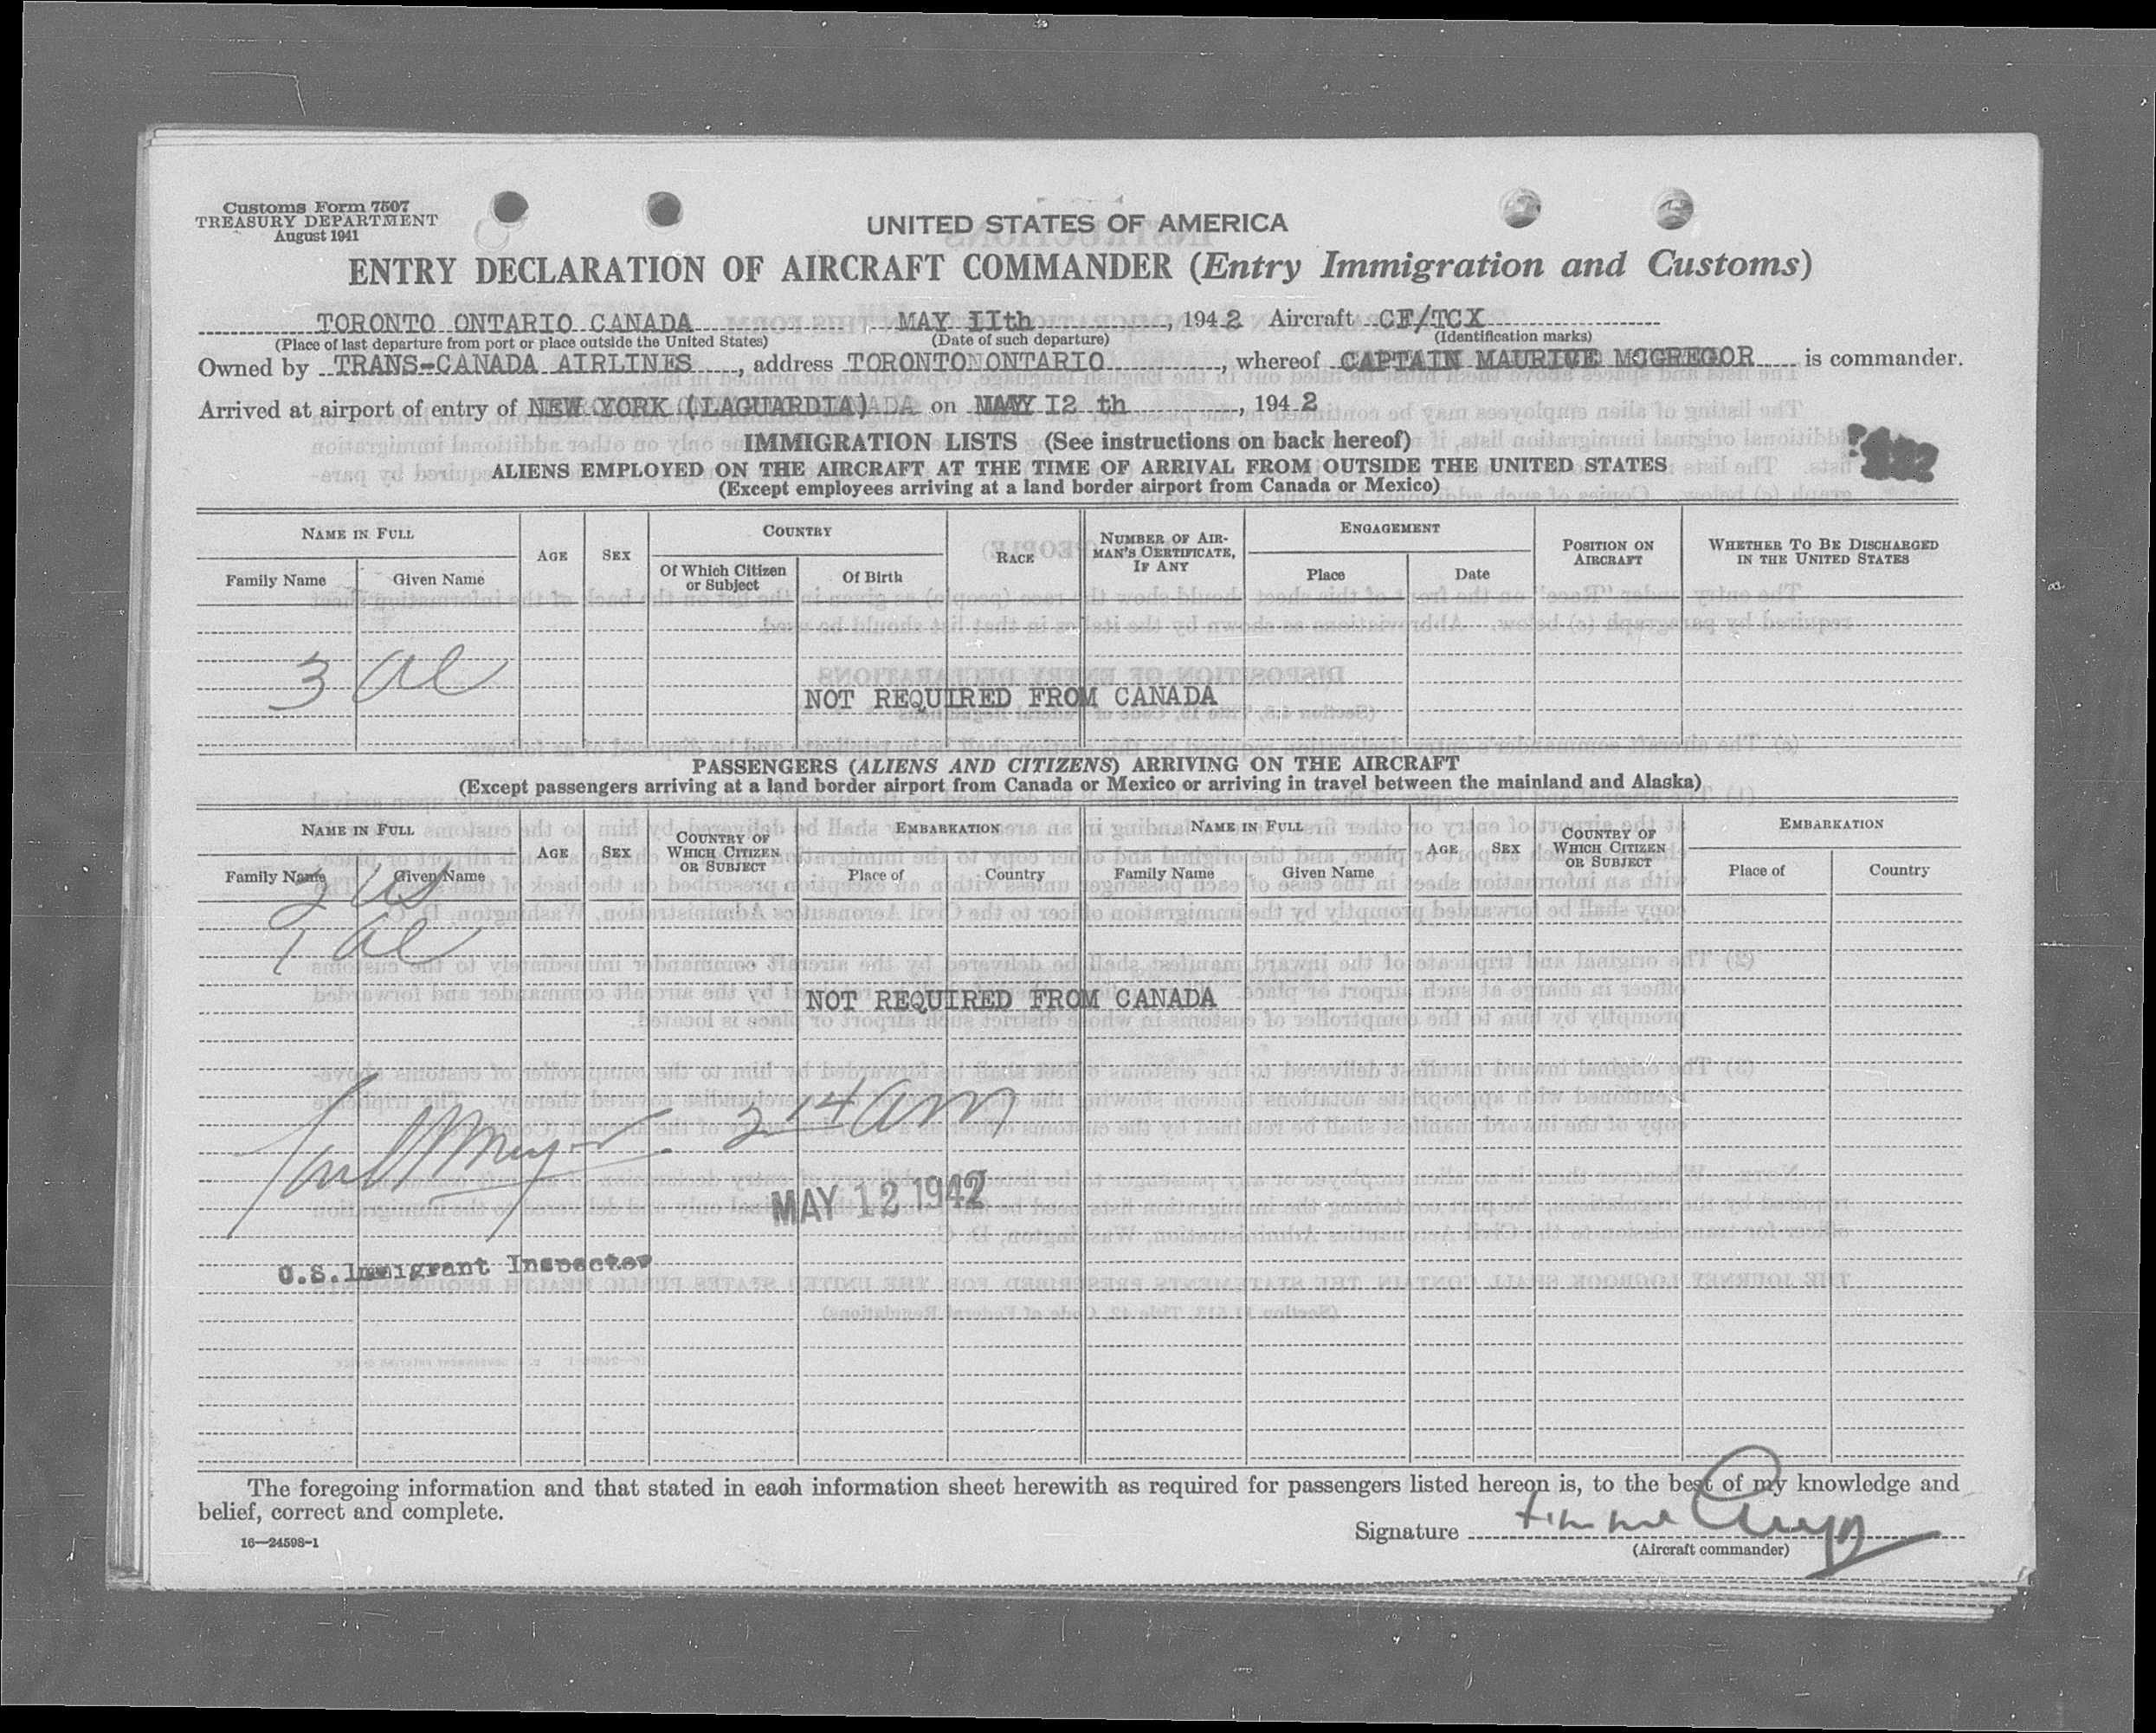 Customs Form 7507
TREASURY DEPARTMENT
August 1941
UNITED STATES OF AMERICA
ENTRY DECLARATION OF AIRCRAFT COMMANDER (Entry Immigration and Customs)
TORONTO ONTARIO CANADA, MAY IIth, 1942 Aircraft CF/TCX
(Place of last departure from port or place outside the United States) (Date of such departure) (Identification marks)
Owned by TRANS-CANADA AIRLINES, address TORONTO ONTARIO, whereof CAPTAIN MAURICE MCGREGOR is commander.
Arrived at airport of entry of NEW YORK (LAGUARDIA) on MAY I2 th, 1942
IMMIGRATION LISTS (See instructions on back hereof)
ALIENS EMPLOYED ON THE AIRCRAFT AT THE TIME OF ARRIVAL FROM OUTSIDE THE UNITED STATES
(Except employees arriving at a land border airport from Canada or Mexico)
NAME IN FULL AGE SEX COUNTRY RACE NUMBER OF AIRMAN'S CERTIFICATE, IF ANY ENGAGEMENT POSITION ON AIRCRAFT WHETHER TO BE DISCHARGED IN THE UNITED STATES
Family Name Given Name Of Which Citizen or Subject Of Birth Place Date
3 al
NOT REQUIRED FROM CANADA
PASSENGERS (ALIENS AND CITIZENS) ARRIVING ON THE AIRCRAFT
(Except passengers arriving at a land border airport from Canada or Mexico or arriving in travel between the mainland and Alaska)
NAME IN FULL AGE SEX COUNTRY OF WHICH CITIZEN OR SUBJECT EMBARKATION NAME IN FULL AGE SEX COUNTRY OF WHICH CITIZEN OR SUBJECT EMBARKATION
Family Name Given Name Place of Country Family Name Given Name Place of Country
2 US
1 al
NOT REQUIRED FROM CANADA
2 14 am
MAY 12 1942
U.S. Immigrant Inspector
The foregoing information and that stated in each information sheet herewith as required for passengers listed hereon is, to the best of my knowledge and
belief, correct and complete.
Signature
16—24598-1
(Aircraft commander)